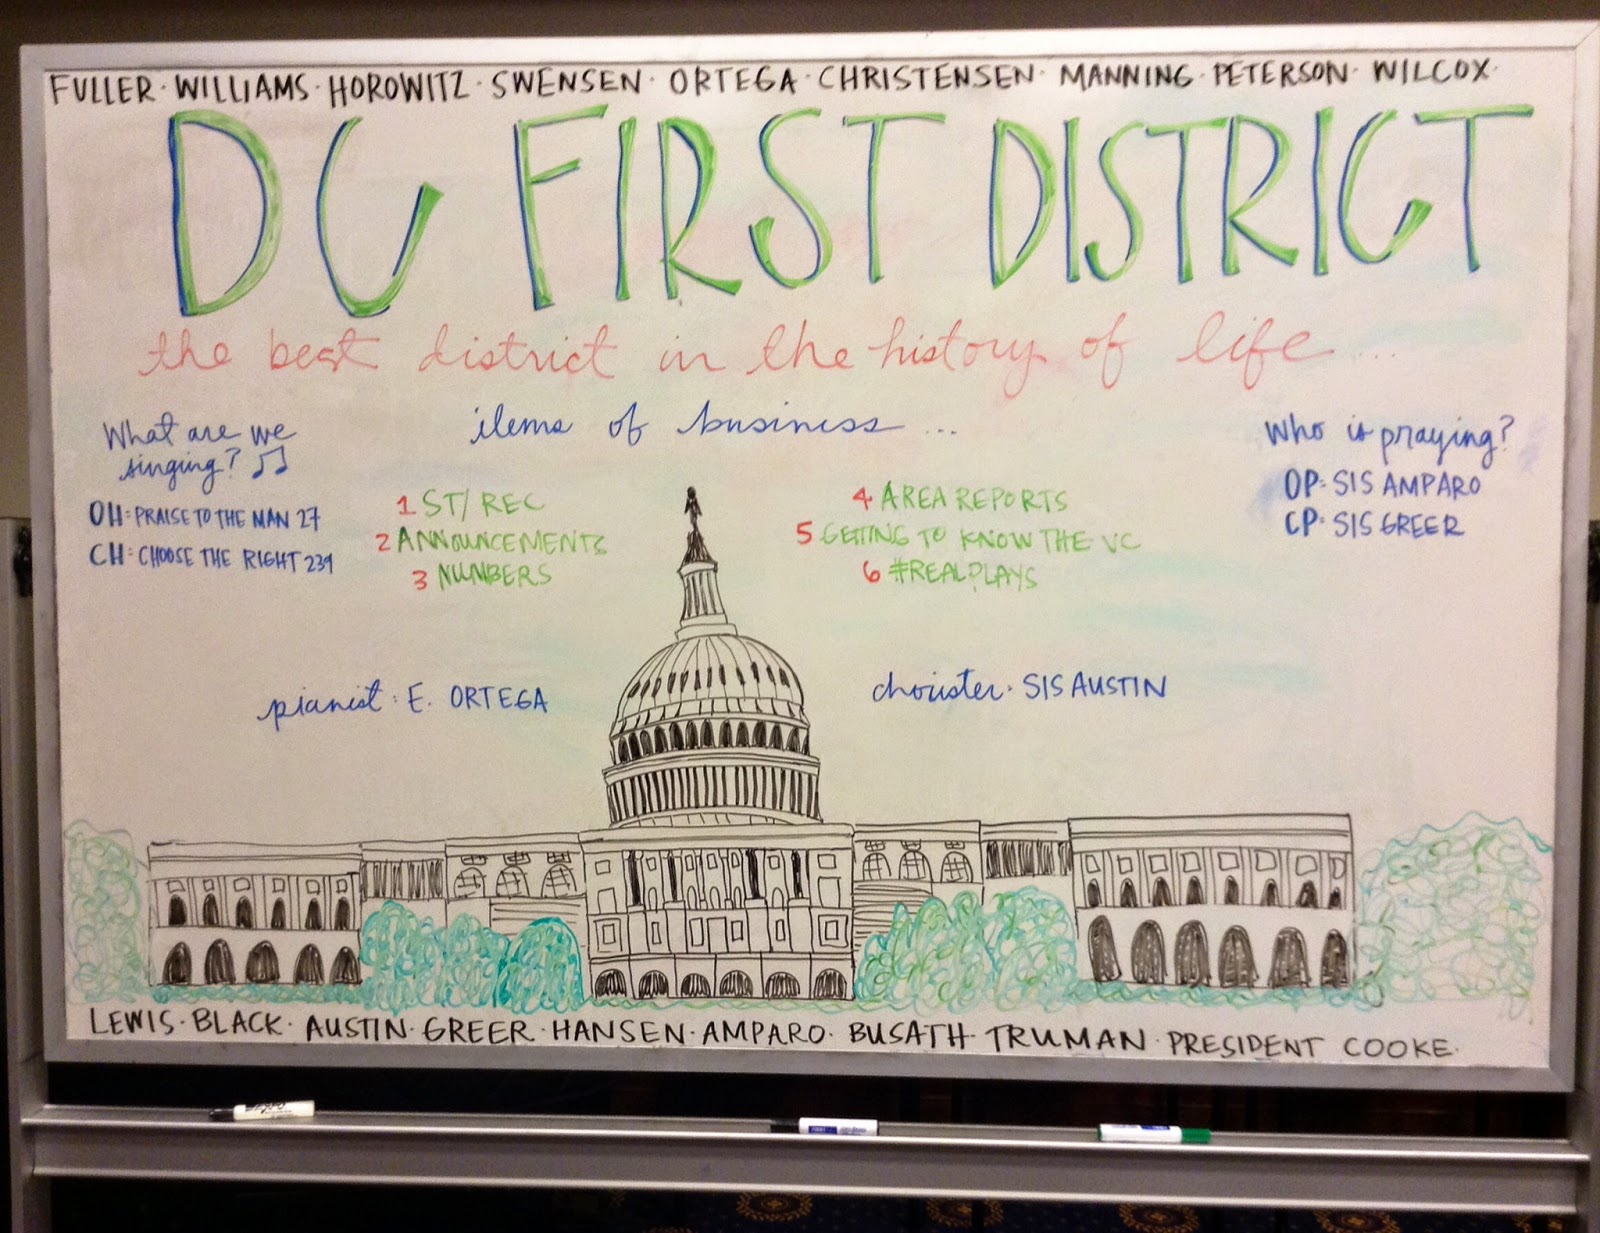 FULLER · WILLIAMS · HOROWITZ · SWENSEN · ORTEGA · CHRISTENSEN · MANNING · PETERSON · WILCOX ·
DC FIRST DISTRICT
the best district in the history of life ...
What are we
singing? ♫
OH: PRAISE TO THE MAN 27
CH: CHOOSE THE RIGHT 239
items of business ...
1 ST/REC
2 ANNOUNCEMENTS
3 NUMBERS
4 AREA REPORTS
5 GETTING TO KNOW THE VC
6 #REALPLAYS
Who is praying?
OP: SIS AMPARO
CP: SIS GREER
pianist: E. ORTEGA
chorister: SIS AUSTIN
LEWIS · BLACK · AUSTIN · GREER · HANSEN · AMPARO · BUSATH · TRUMAN · PRESIDENT COOKE ·